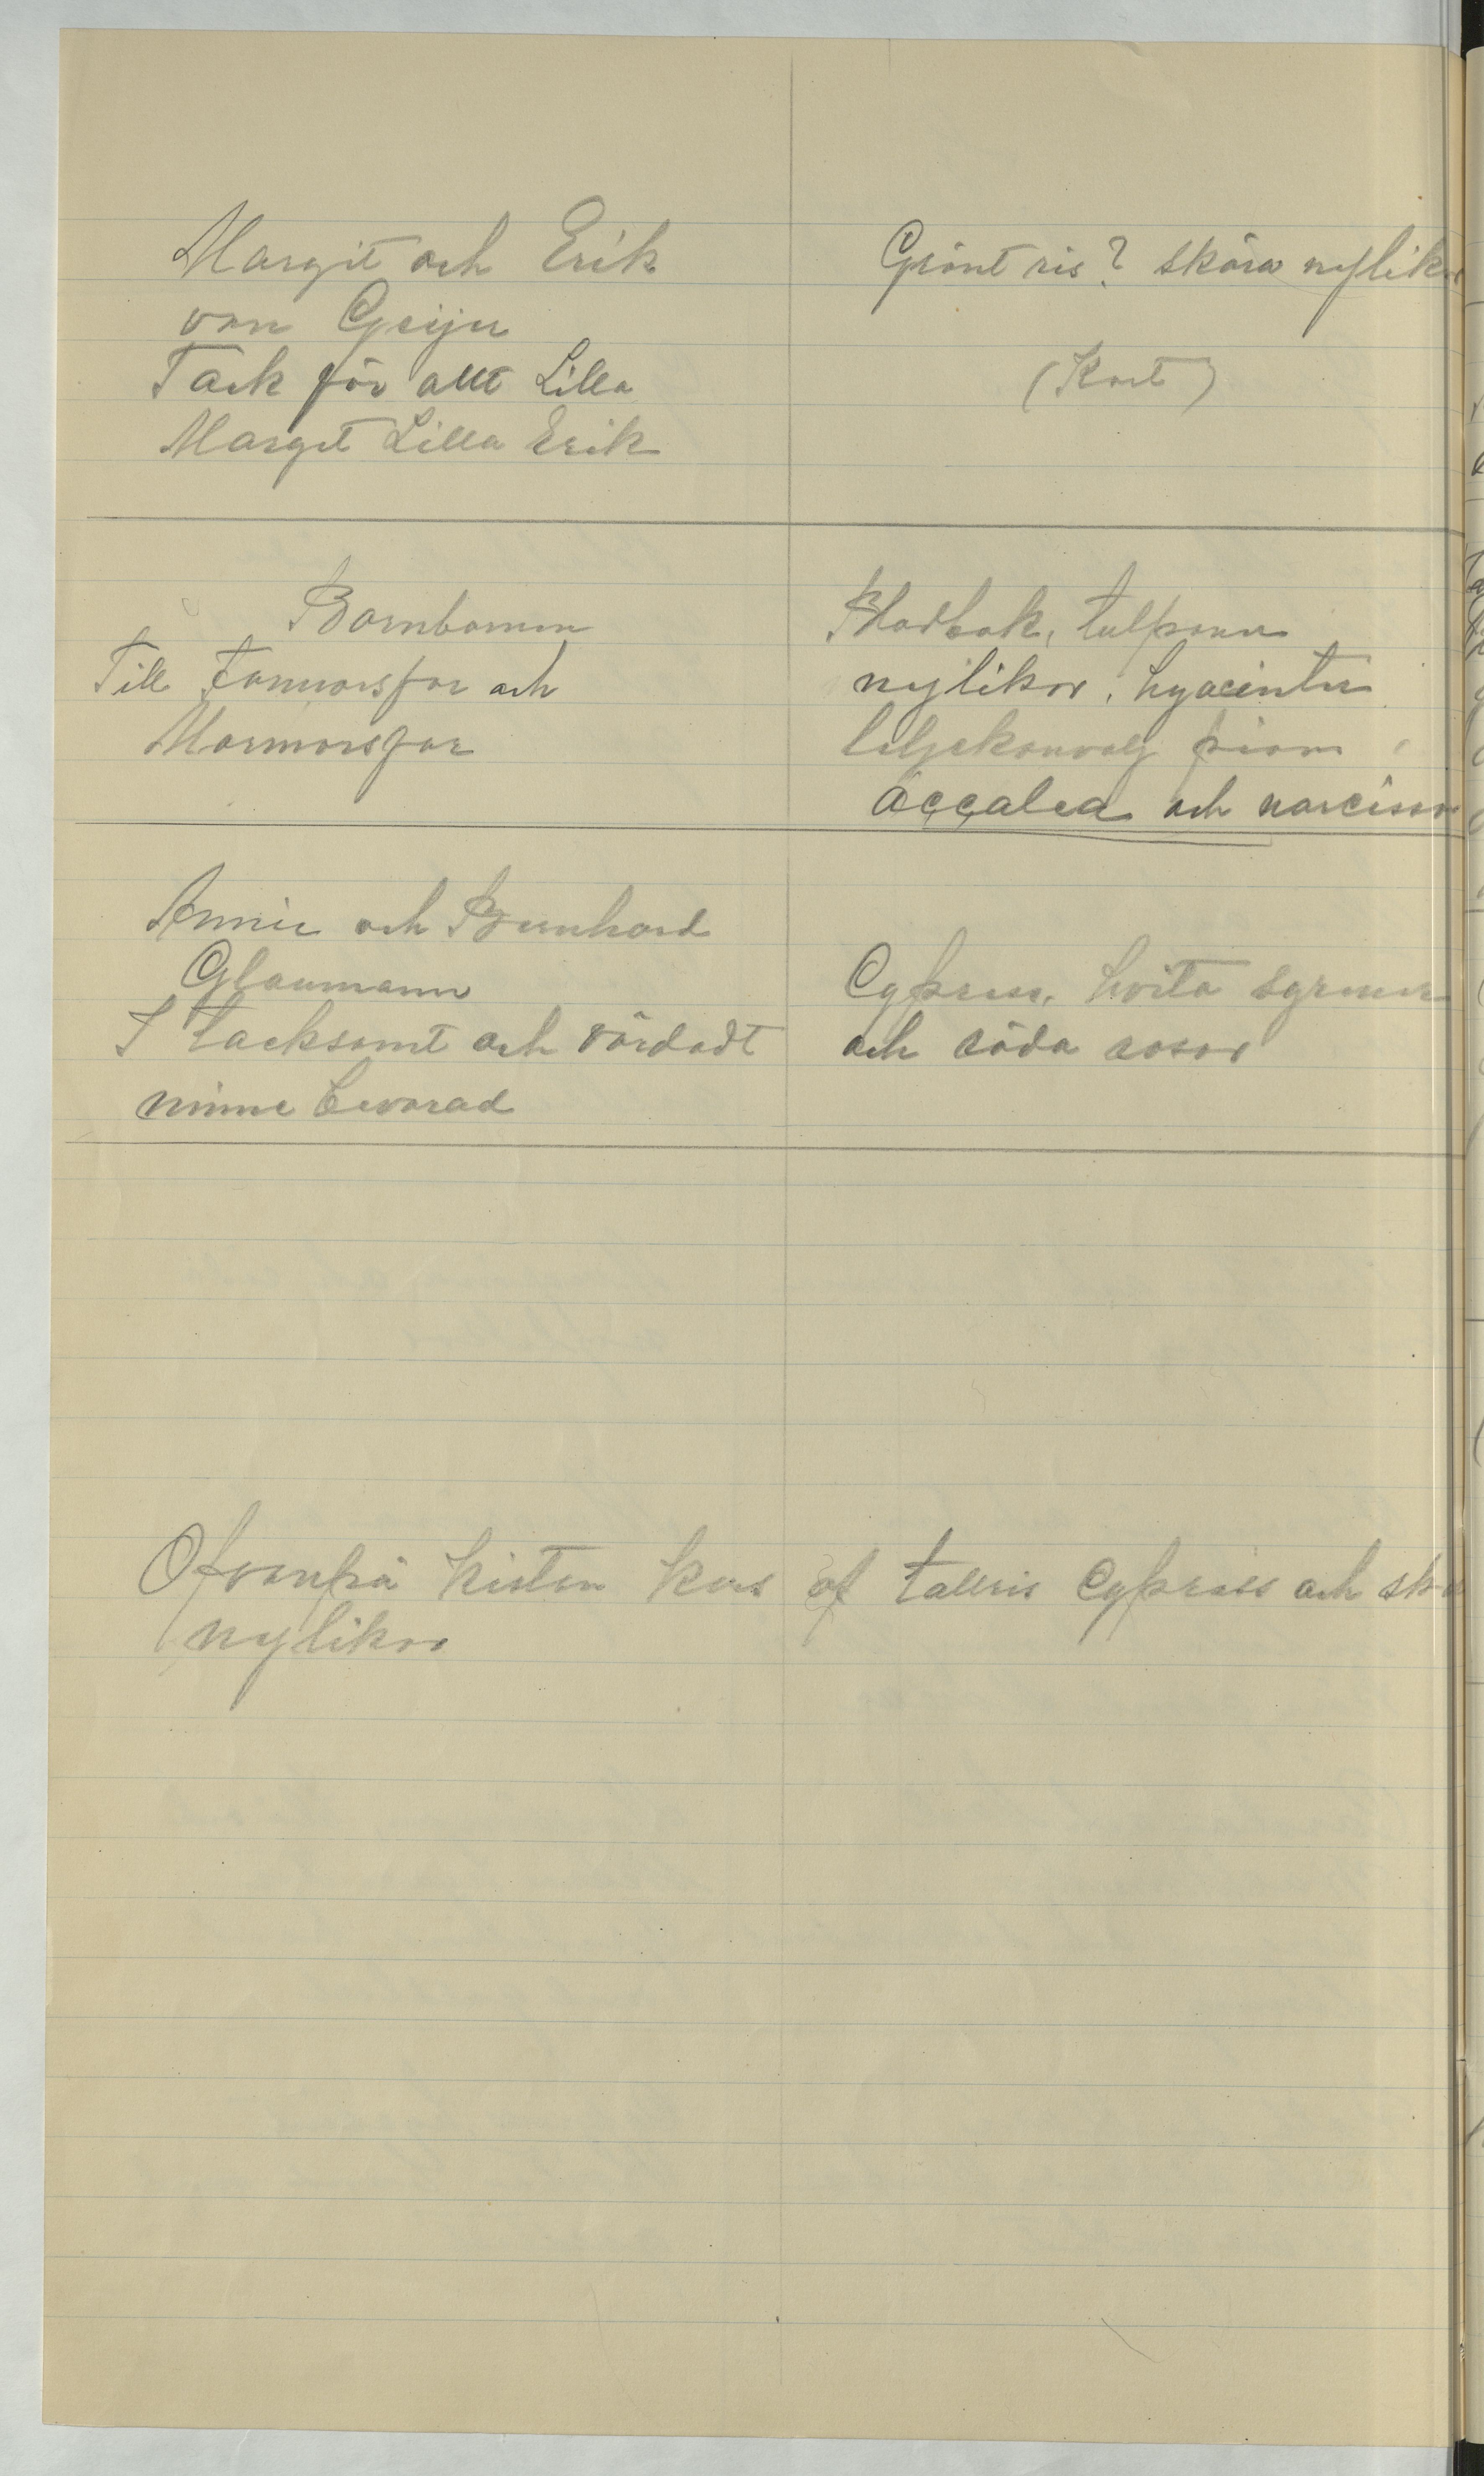 Margit och Erik
von Geijer
Tack för allt Lilla
Margit Lilla Erik
Grönt ris? skära nejlikor
(Kort)
Barnbarnen
Till Farmorsfar och
Mormorsfar
Blodbok, tulpaner
nejlikor, hyacinter
liljekonvalj pion
accalea och narcisser
Annie och Bernhard
Glaumann
I tacksamt och vördadt
minne bevarad
Cypress, hvita syrener
och röda rosor
Ofvanpå kistan kors af tallris cypress och
nejlikor